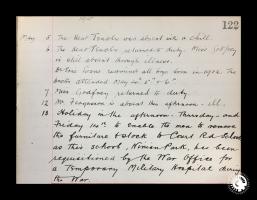 122
May 5 The Head Teacher was absent with a chill.
6 The Head Teacher returned to duty. Miss Godfrey
is still absent through illness.
Dr. Fox's reexamined all boys born in 1902. The
Doctor attended May 4th 5th & 6th
7 Miss Godfrey returned to duty
12 Mr. Ferguson is absent this afternoon - ill.
13 Holiday in the afternoon. Thursday - and
Friday 14th to enable the men to remove
the furniture & stock to Court Rd School
as this school, Ninian Park, has been
requisitioned by the War Office for
a Temporary Military Hospital during
the War.